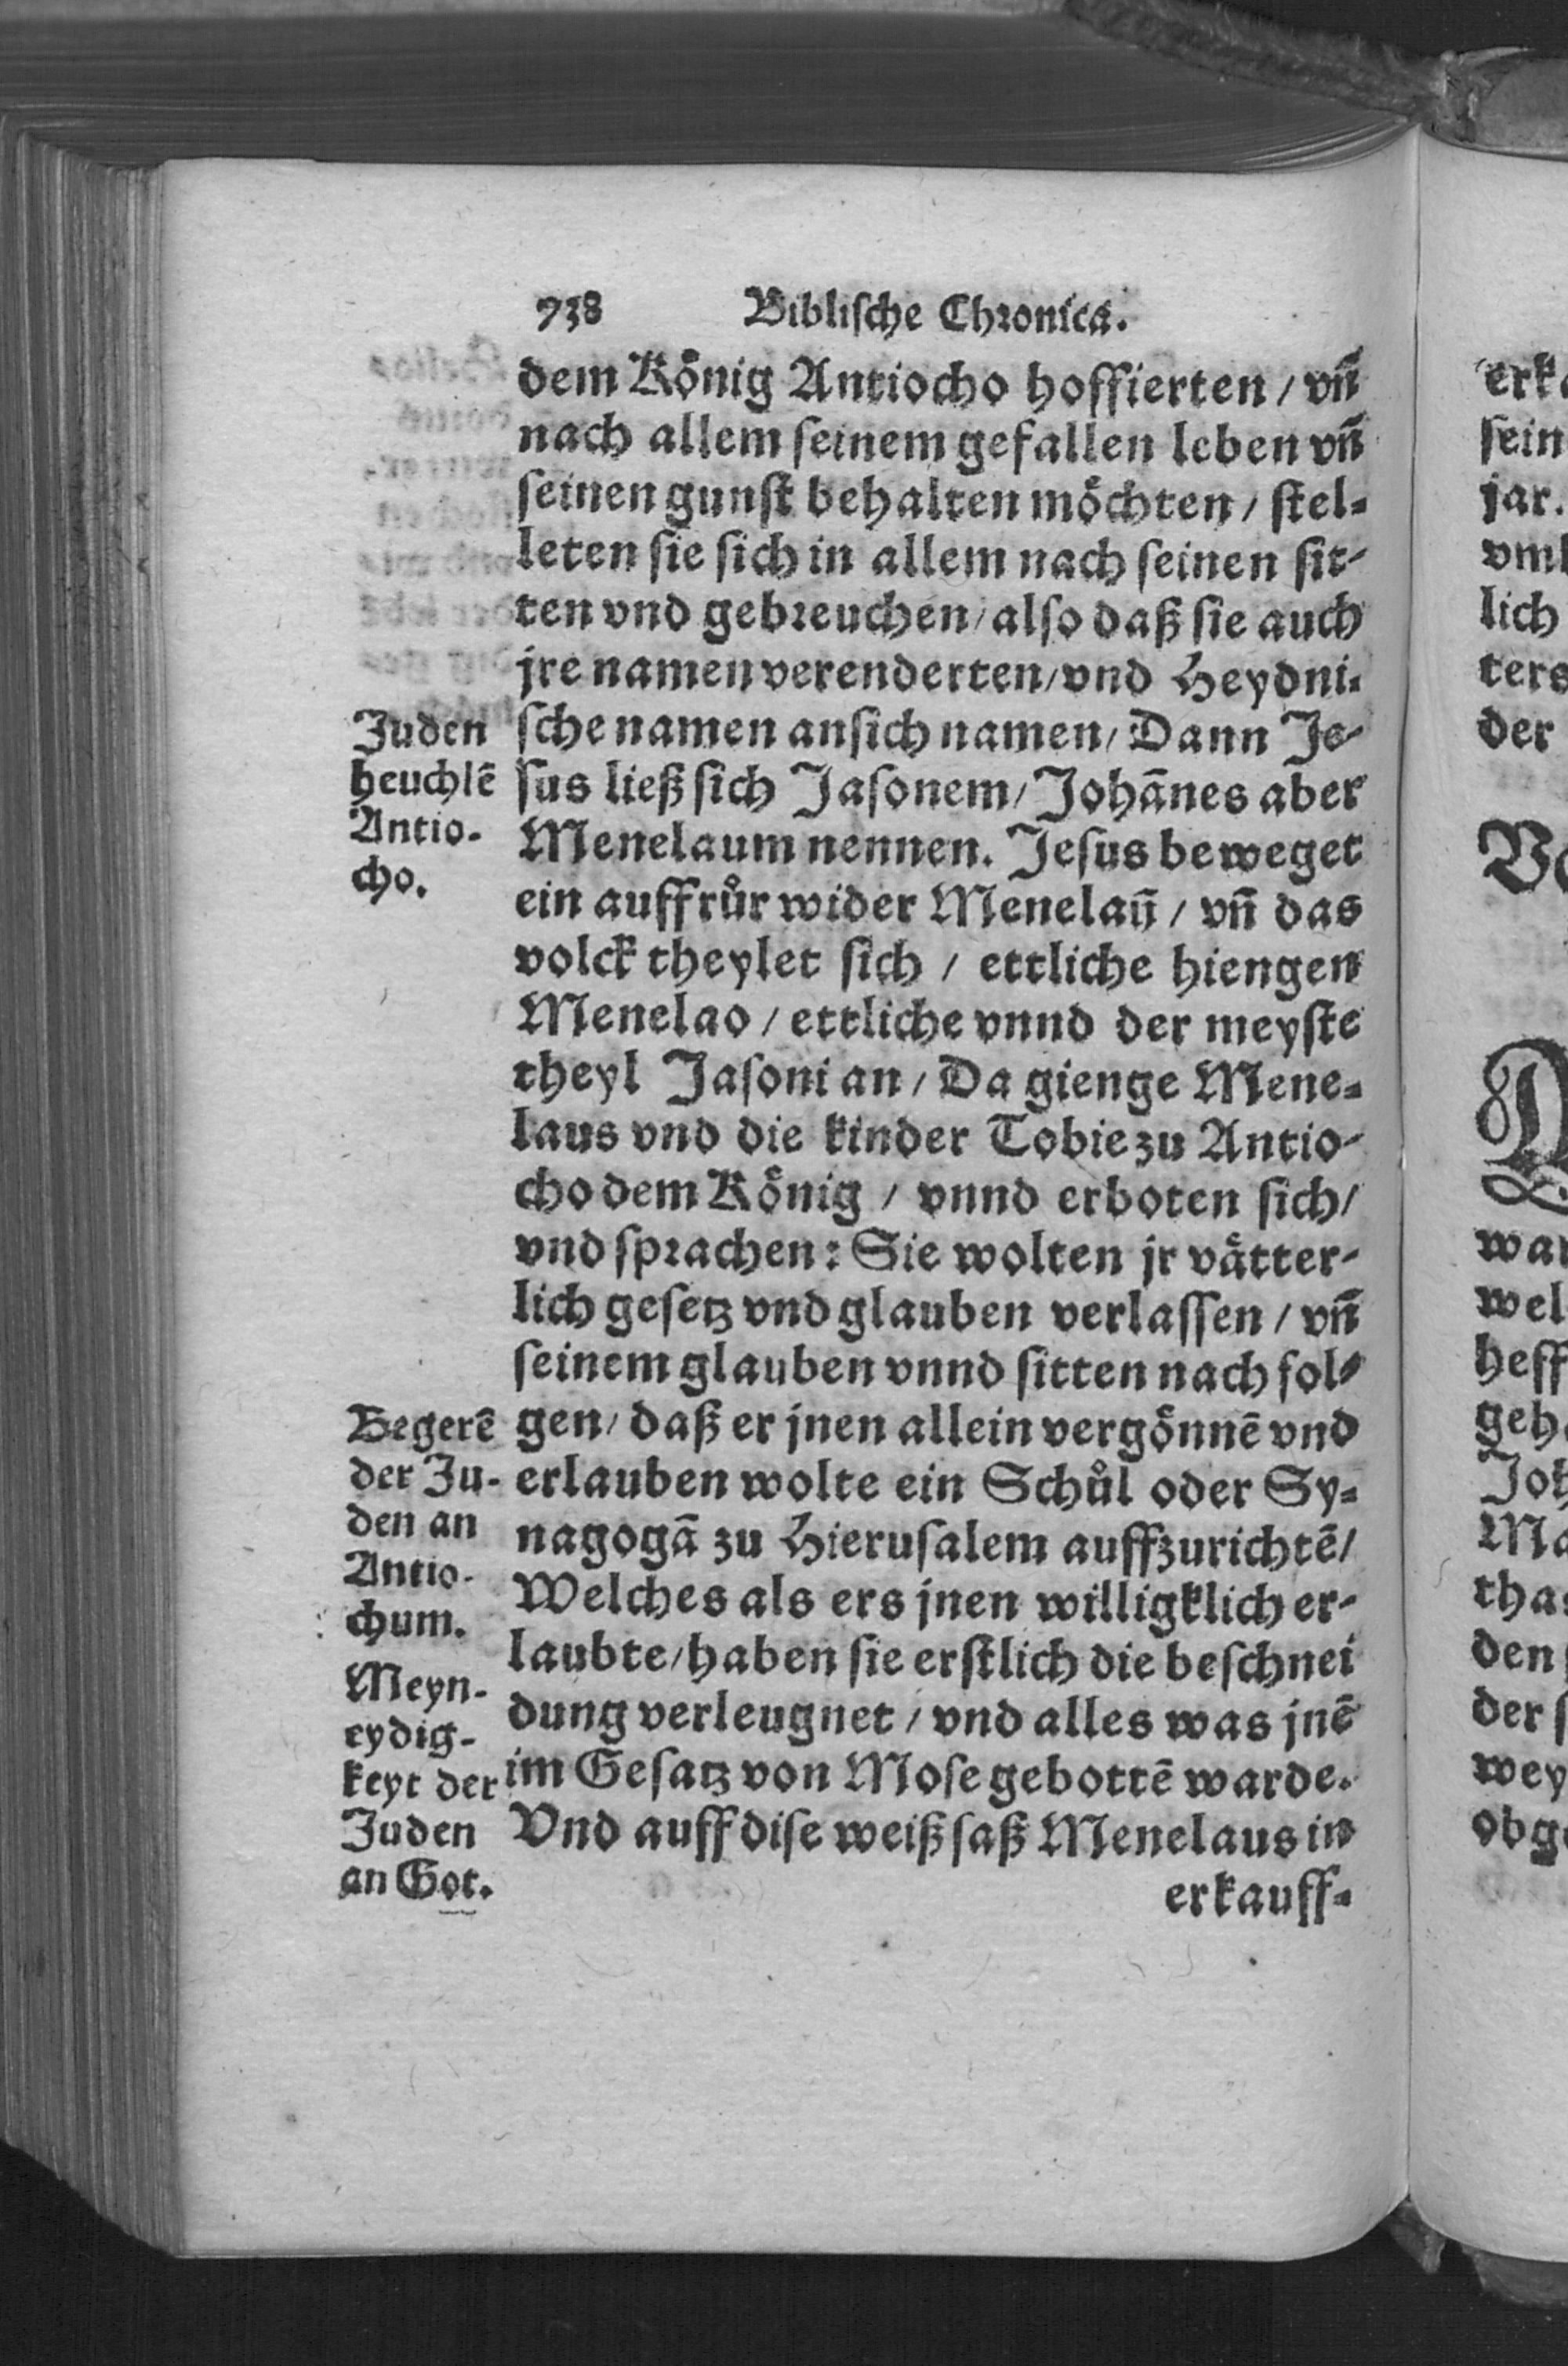 738 Biblische Chronica.
dem König Antiocho hoffierten / vñ
nach allem seinem gefallen leben vñ
seinen gunst behalten möchten / stel-
leten sie sich in allem nach seinen sit-
ten vnd gebreuchen / also daß sie auch
jre namen verenderten / vnd Heydni-
sche namen ansich namen / Dann Je-
sus ließ sich Jasonem / Johānes aber
Menelaum nennen. Jesus beweget
ein auffrůr wider Menelaū / vñ das
volck theylet sich / ettliche hiengen
Menelao / ettliche vnnd der meyste
theyl Jasoni an / Da gienge Mene-
laus vnd die kinder Tobie zu Antio-
cho dem König / vnnd erboten sich /
vnd sprachen: Sie wolten jr vätter-
lich gesetz vnd glauben verlassen / vñ
seinem glauben vnnd sitten nach fol-
gen / daß er jnen allein vergönnē vnd
erlauben wolte ein Schůl oder Sy-
nagogā zu Hierusalem auffzurichtē /
Welches als ers jnen willigklich er-
laubte / haben sie erstlich die beschnei
dung verleugnet / vnd alles was jnē
im Gesatz von Mose gebottē warde.
Vnd auff dise weiß saß Menelaus in
erkauff-
Juden
heuchlē
Antio-
cho.
Begerē
der Ju-
den an
Antio-
chum.
Meyn-
eydig-
keyt der
Juden
an Got.
erk
sein
jar.
vm
lich
ters
der
wel
heff
geh
Joh
Ma
tha
den
der
wey
obg